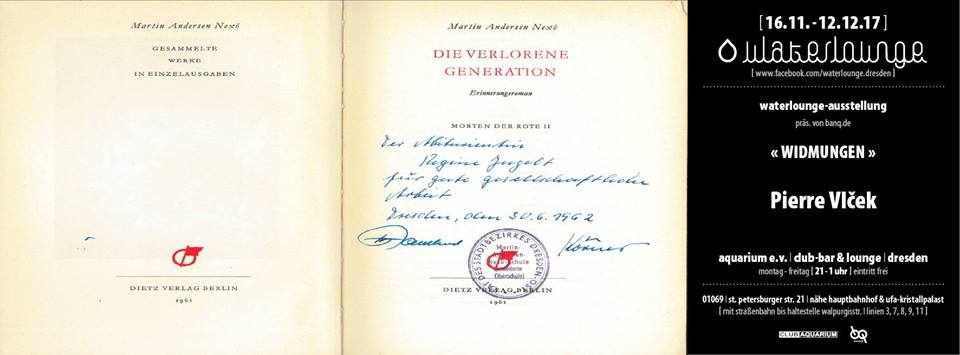 Martin Andersen Nexö
GESAMMELTE
WERKE
IN EINZELAUSGABEN
DIETZ VERLAG BERLIN
1961
Martin Andersen Nexö
DIE VERLORENE
GENERATION
Erinnerungsroman
MORTEN DER ROTE II
Der Abiturientin
Regine
für gute gesellschaftliche
Arbeit
Dresden, den 30.6.1962
Körner
RAT DES STADTBEZIRKES DRESDEN-OST
Martin-
Andersen-
Nexö-Schule
Oberschule)
DIETZ VERLAG BERLIN
1961
[ 16.11. - 12.12.17 ]
waterlounge
[ www.facebook.com/waterlounge.dresden ]
waterlounge-ausstellung
präs. von banq.de
« WIDMUNGEN »
Pierre Vlček
aquarium e.v. | club-bar & lounge | dresden
montag - freitag | 21 - 1 uhr | eintritt frei
01069 | st. petersburger str. 21 | nähe hauptbahnhof & ufa-kristallpalast
[ mit straßenbahn bis haltestelle walpurgisstr. | linien 3, 7, 8, 9, 11 ]
CLUBAQUARIUM